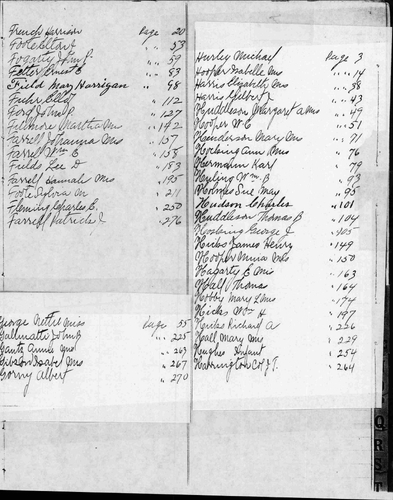 French Harrison Page 20
Foote Ella J " 53
Fogarty John J. " 59
Felter Ernest E " 83
Field Mary Harrigan " 98
" 112
Ford John P. " 127
Fillmore Martha Mrs " 192
Farrell Johanna Mrs " 157
Farrell Wm E " 158
Fuller Lee D " 183
Farrell Hannah Mrs " 195
Foote Sylvia M " 211
Fleming Charles E. " 250
Farrell Patrick J " 276
George Nettie Miss Page 55
Gallinatti John B " 225
Gantz Annie Mrs " 263
Gibson Isabel Mrs " 267
Gorny Albert " 270
Hurley Michael Page 3
Hooper Isabelle Mrs " 14
Harris Elizabeth Mrs " 38
Harris Gilbert J " 43
Huddleson Margaret A Mrs " 49
Hooper W C " 51
Henderson Mary Mrs " 71
Hosking Ann Mrs " 76
Hermann Karl " 79
Wm B " 93
Holmes Sue May " 95
Hudson Charles " 101
Huddleson Thomas B " 104
Hosking George J " 105
Hicks James Henry " 149
Hooper Minia Mrs " 150
Hagarty E Mrs " 163
Hall Thomas " 164
Hobby Mary L Mrs " 174
Hicks Wm H " 197
Hicks Richard A " 226
Hall Mary Mrs " 229
Hughes Infant " 254
Harrington Col J T. " 264
Q R S T